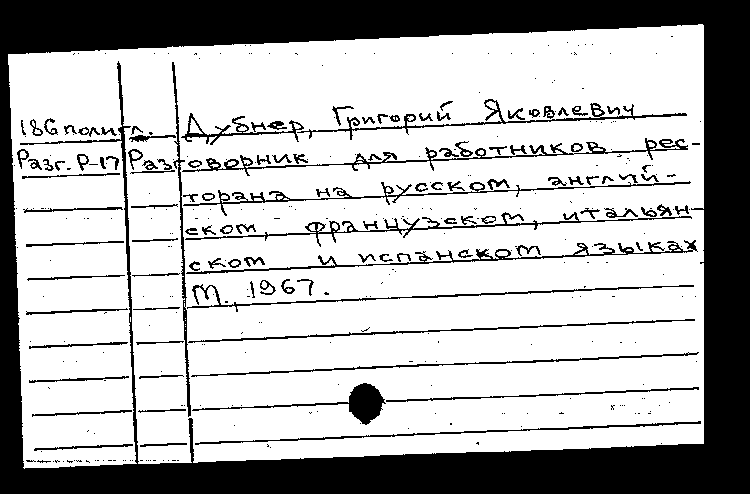 18Gполигл. Дубнер, Григорий Яковлевич
Разг. Р-17 Разговорник для работников рес-
торана на русском, англий-
ском, французском, итальян-
ском и испанском языках
М., 1967.